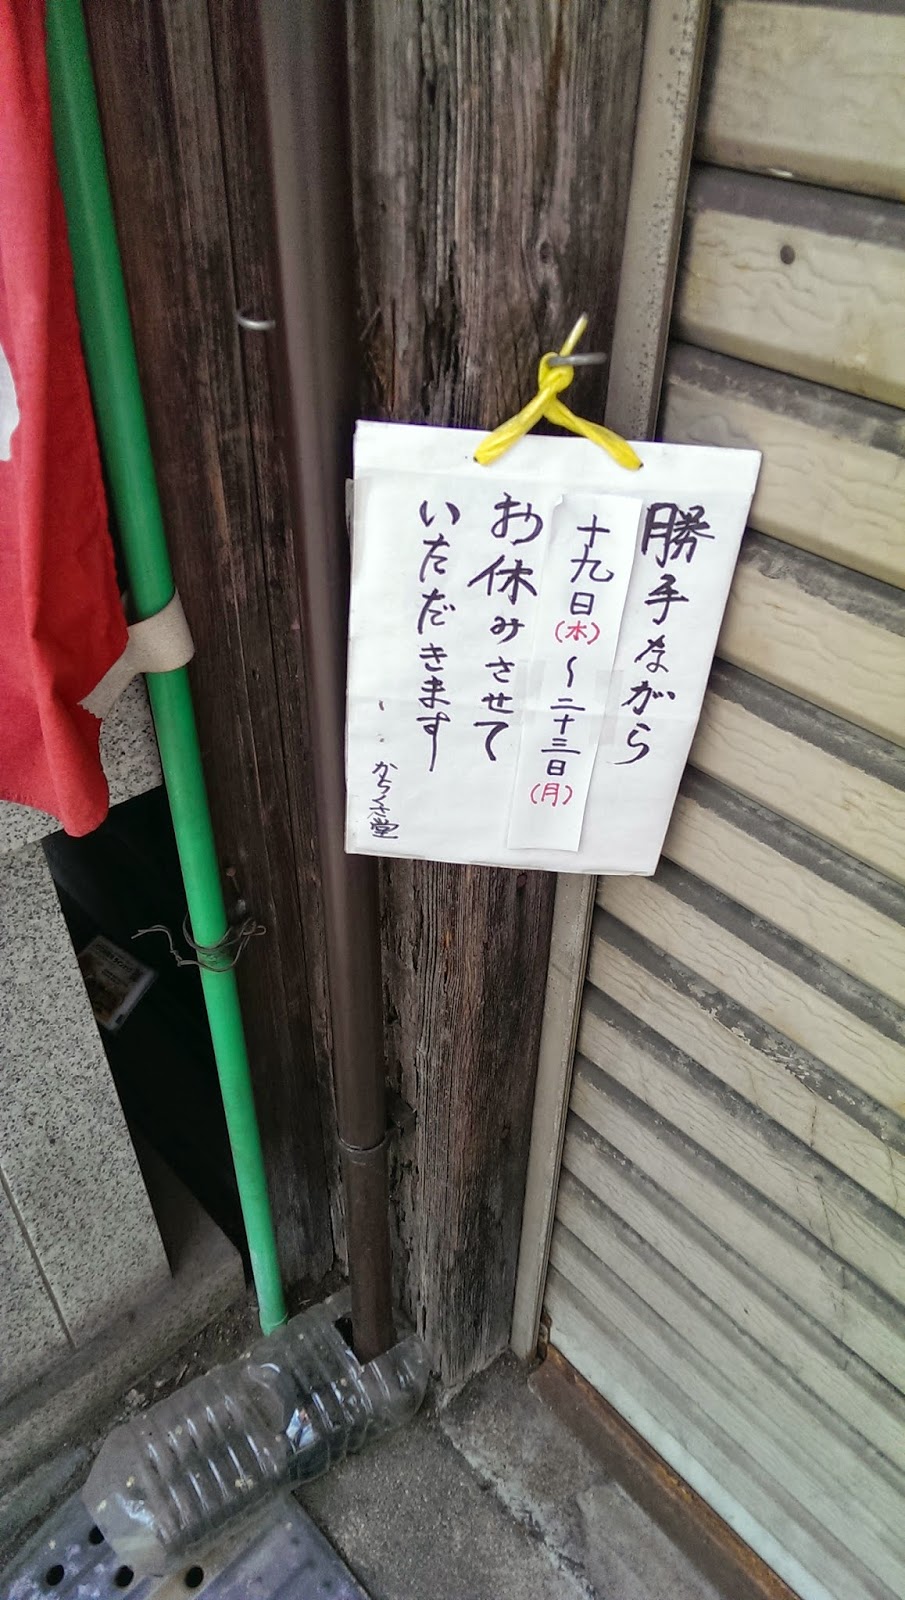 勝手ながら
十九日(木)〜二十三日(月)
お休みさせて
いただきます
からくさ堂